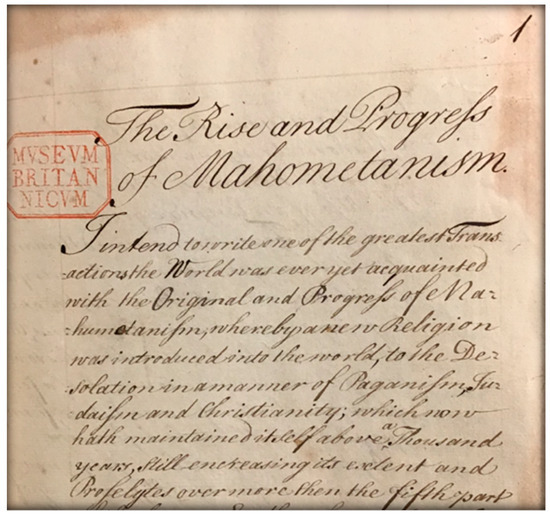 1
The Rise and Progress
of Mahometanism.
MVSEVM
BRITAN
NICVM
I intend to write one of the greatest Trans-
-actions the World was ever yet acquainted
with the Original and Progress of Ma-
-humetanism, whereby a new Religion
was introduced into the world, to the De-
solation in a manner of Paganism, Ju-
daism and Christianity; which now
hath maintained itself above a Thousand
years, still encreasing its extent and
Proselytes over more then the fifth part